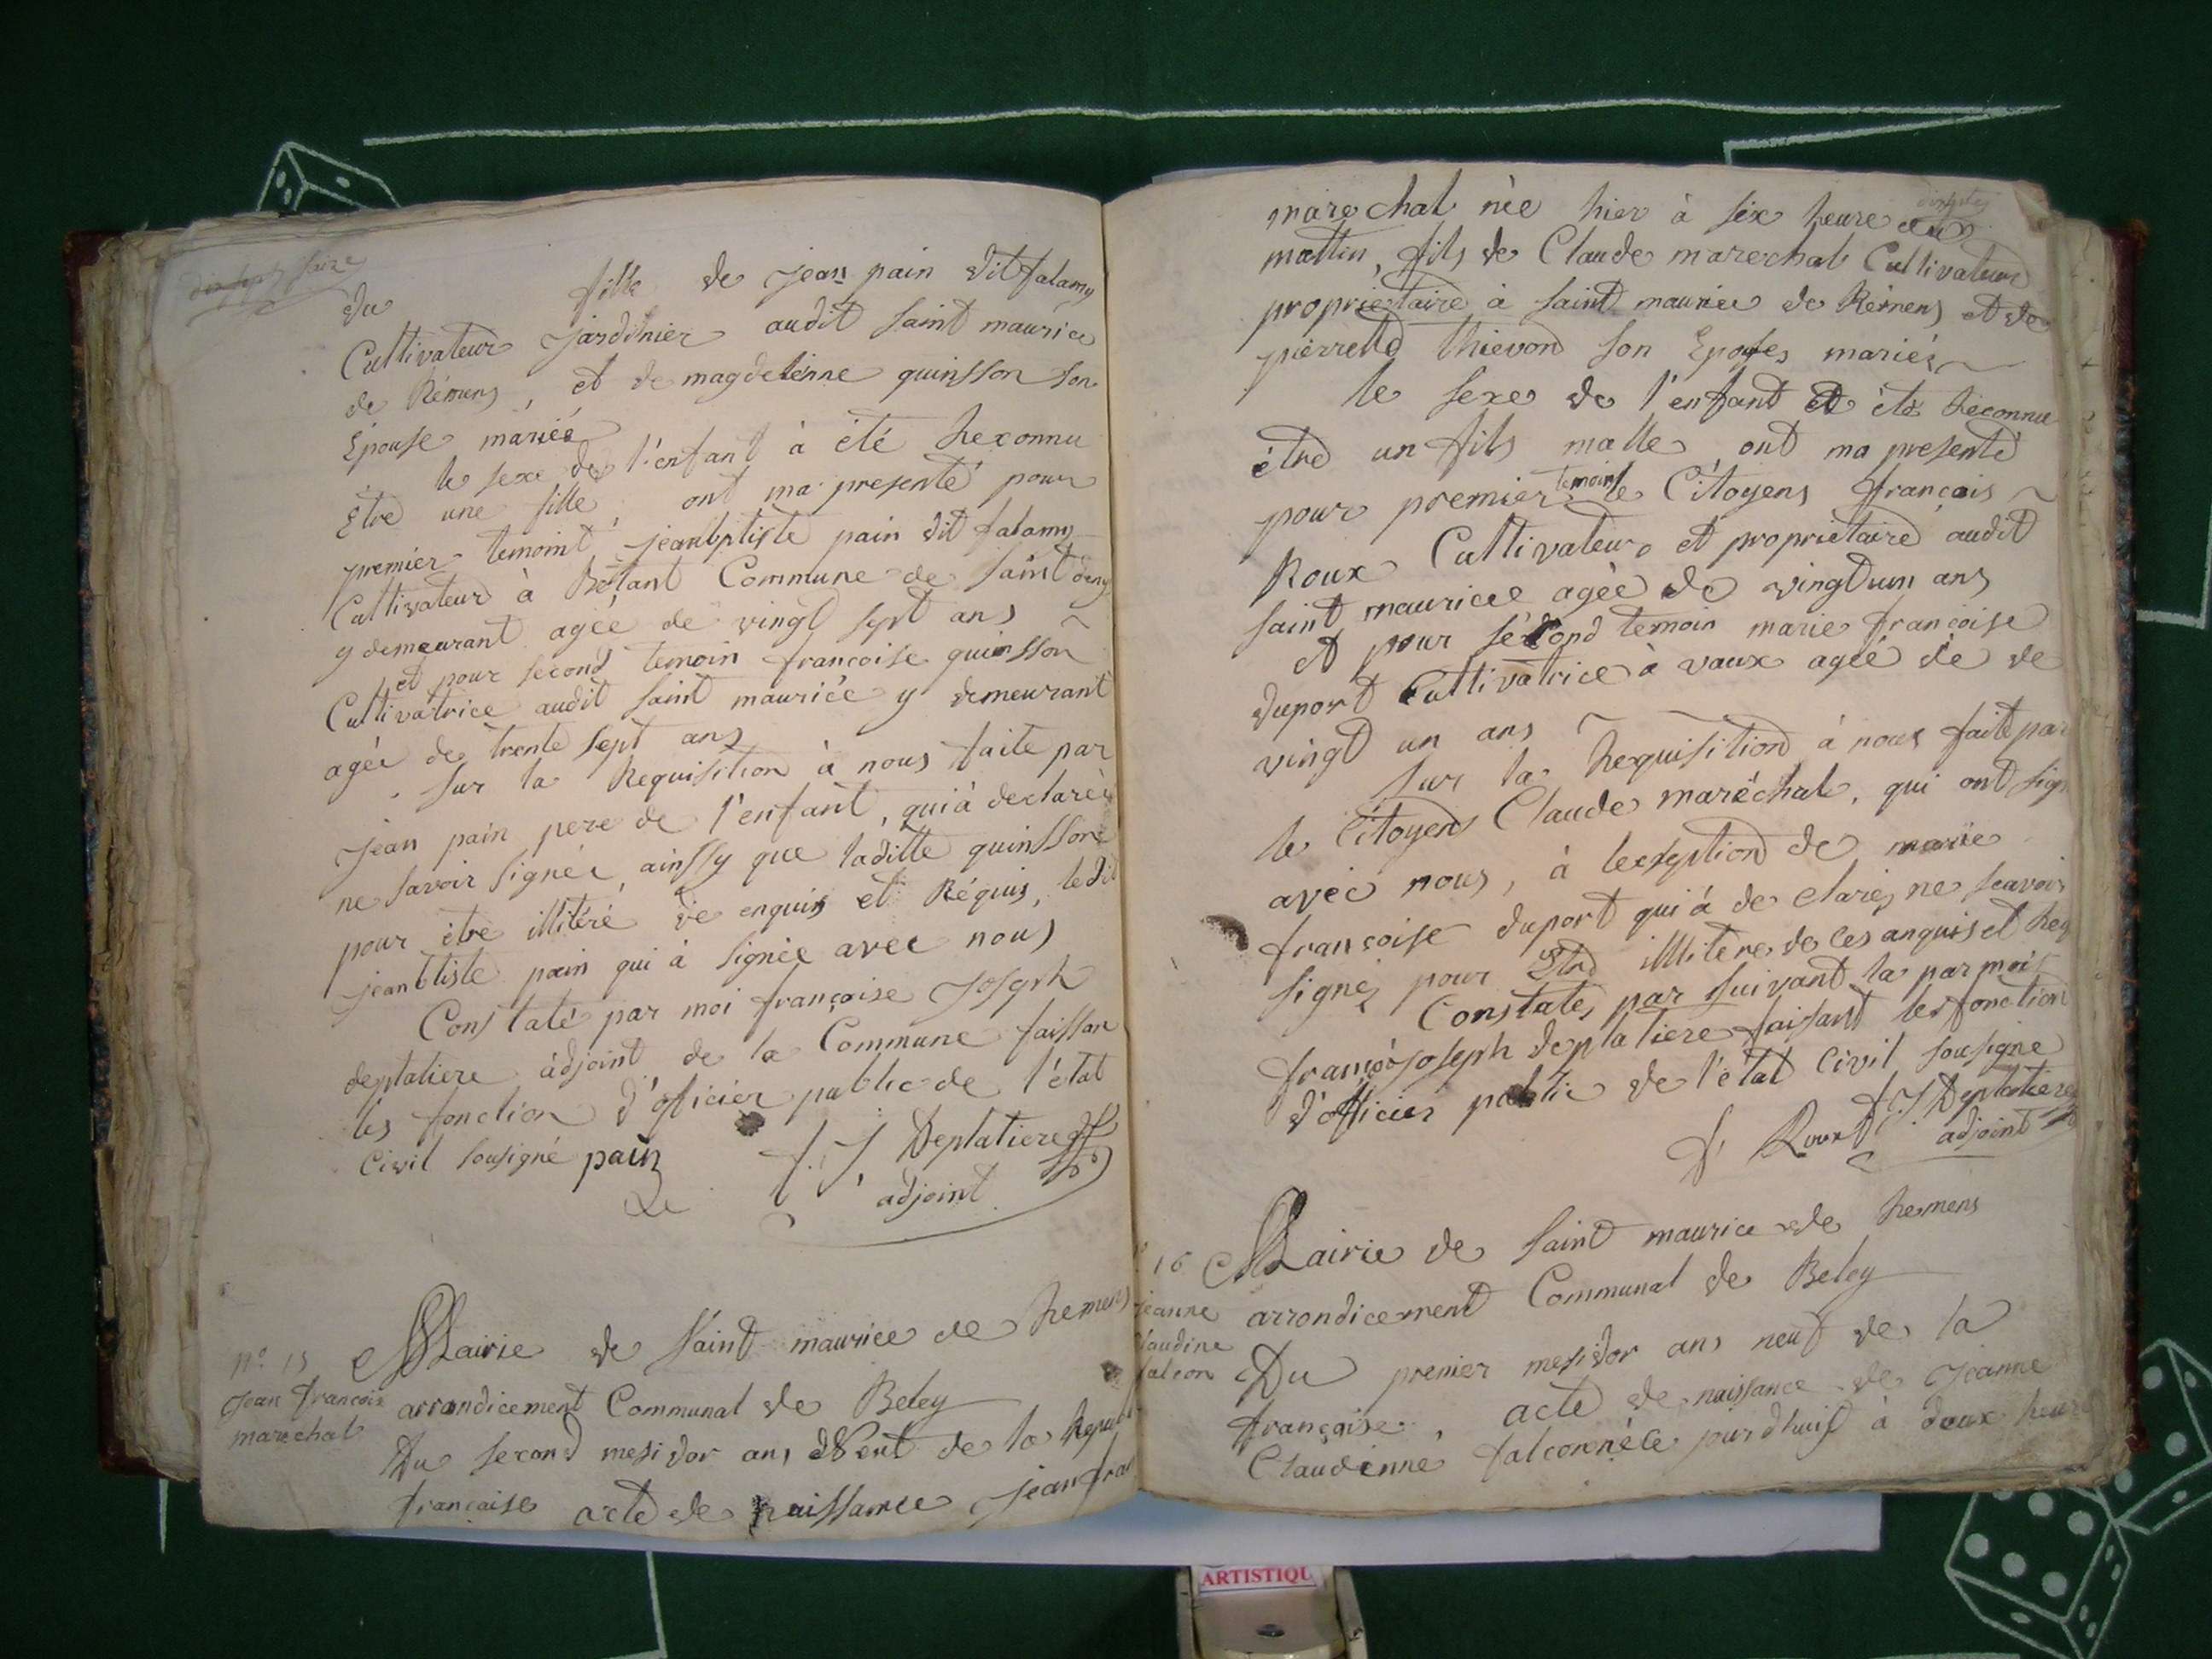 dixsept saize
du fille de jean pain dit falamy
Cultivateur jardinier audit saint maurice
de Rémens, et de magdeleinne quinsson son
Epouse mariée
le sexe de l'enfant à été Reconnu
être une fille, ont ma presenté pour
premier temoint jeanbptiste pain dit falamy
Cultivateur à Bôtant Commune de saint deny
y demeurant agée de vingt sept ans ~
et pour second temoin francoise quinsson
Cultivatrice audit saint mauriće y demeurant
agée de trente sept ans
sur la Requisition à nous faite par
jean pain pere de l'enfant, qui à declarée
ne savoir signée, ainssy que laditte quinssone
pour être illitéré de enquis et Réquis, ledit
jeanbtiste pain qui à signée avec nous
Constaté par moi françoise Joseph
deplatiere adjoint de la Commune faissan
les fonction d'officier public de l'état
Civil sousigné pain f. J Deplatiere
adjoint
n.º 15
jean francois
marechal
Mairie de Saint maurice de Remens
arrondicement Communal de Beley
Du second mesidor ans Neuf de la Repub
française acte de naissance jeanfran
dixsptes
marechal née hier à six heure du
mattin, fils de Claude marechal Cultivateur
proprietaire à saint maurice de Rémens et de
pierrette thievond son Epouses mariés ~
le sexe de l'enfant et été Reconnu
être un fils malle, ont ma presenté
pour premier temoint le Citoyens françois ~
Roux Cultivateur et proprietaire audit
saint mauricee agée de vingt un ans
et pour second temoin marie francoise
duport Cultivatrice à vaux agée de de
vingt un ans ~
sur la Requisition à nous fait par
le Citoyens Claude maréchal, qui ont sign
avec nous, à lexseption de marie
francoise duport qui à de clarée, ne scavoir
signe, pour Etre illitere de ces anquis et Req
Constatés par suivant la par moi
françois joseph deplatiere faisant les fonction
d'officier public de l'état Civil sousigne
f. Roux f. J Deplatiere
adjoint
16
jeanne
Claudine
falcon
Mairie de saint maurice de Remens
arrondicement Communal de Beley
Du premier mesidor ans neuf de la
française, acte de naissance de jeanne
Claudinne falconnéle jourdhuit à deux heure
ARTISTIQU